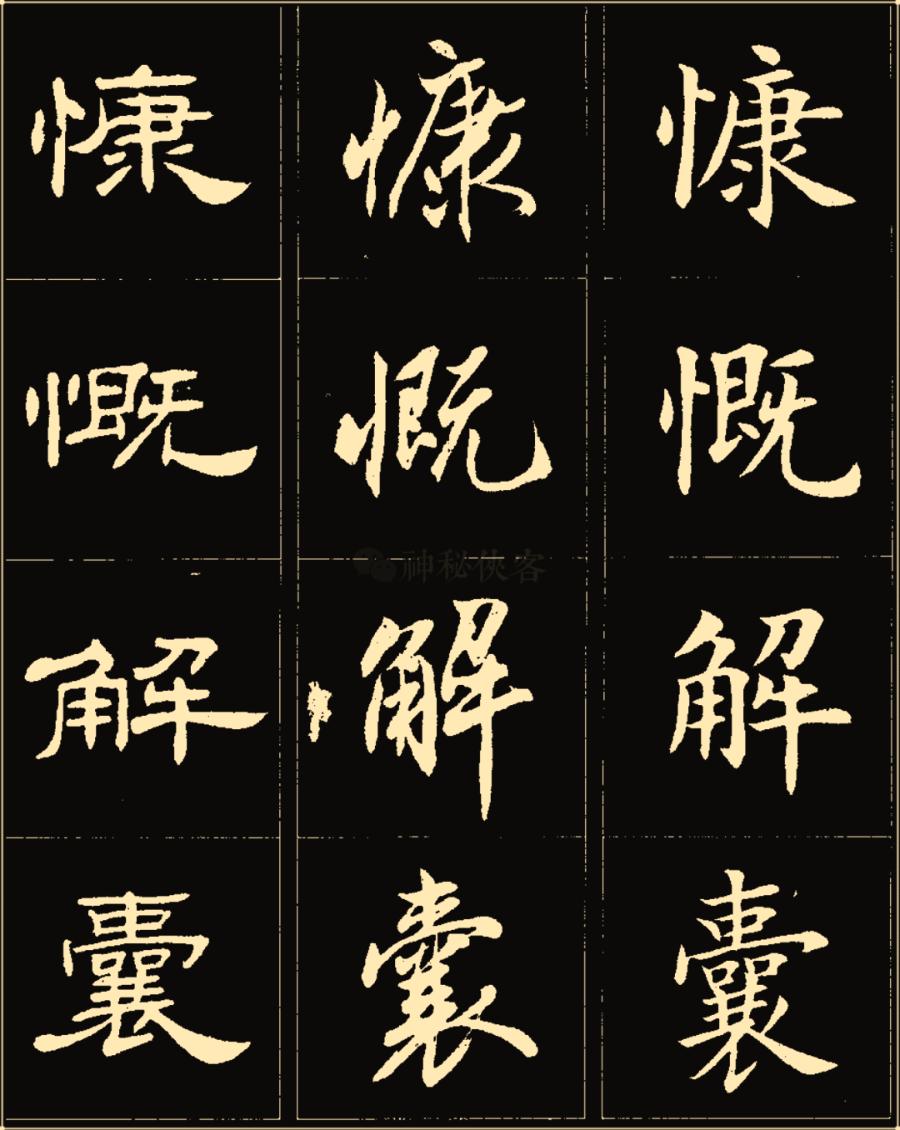 慷慷慷
慨慨慨
解解解
囊囊囊
神秘侠客